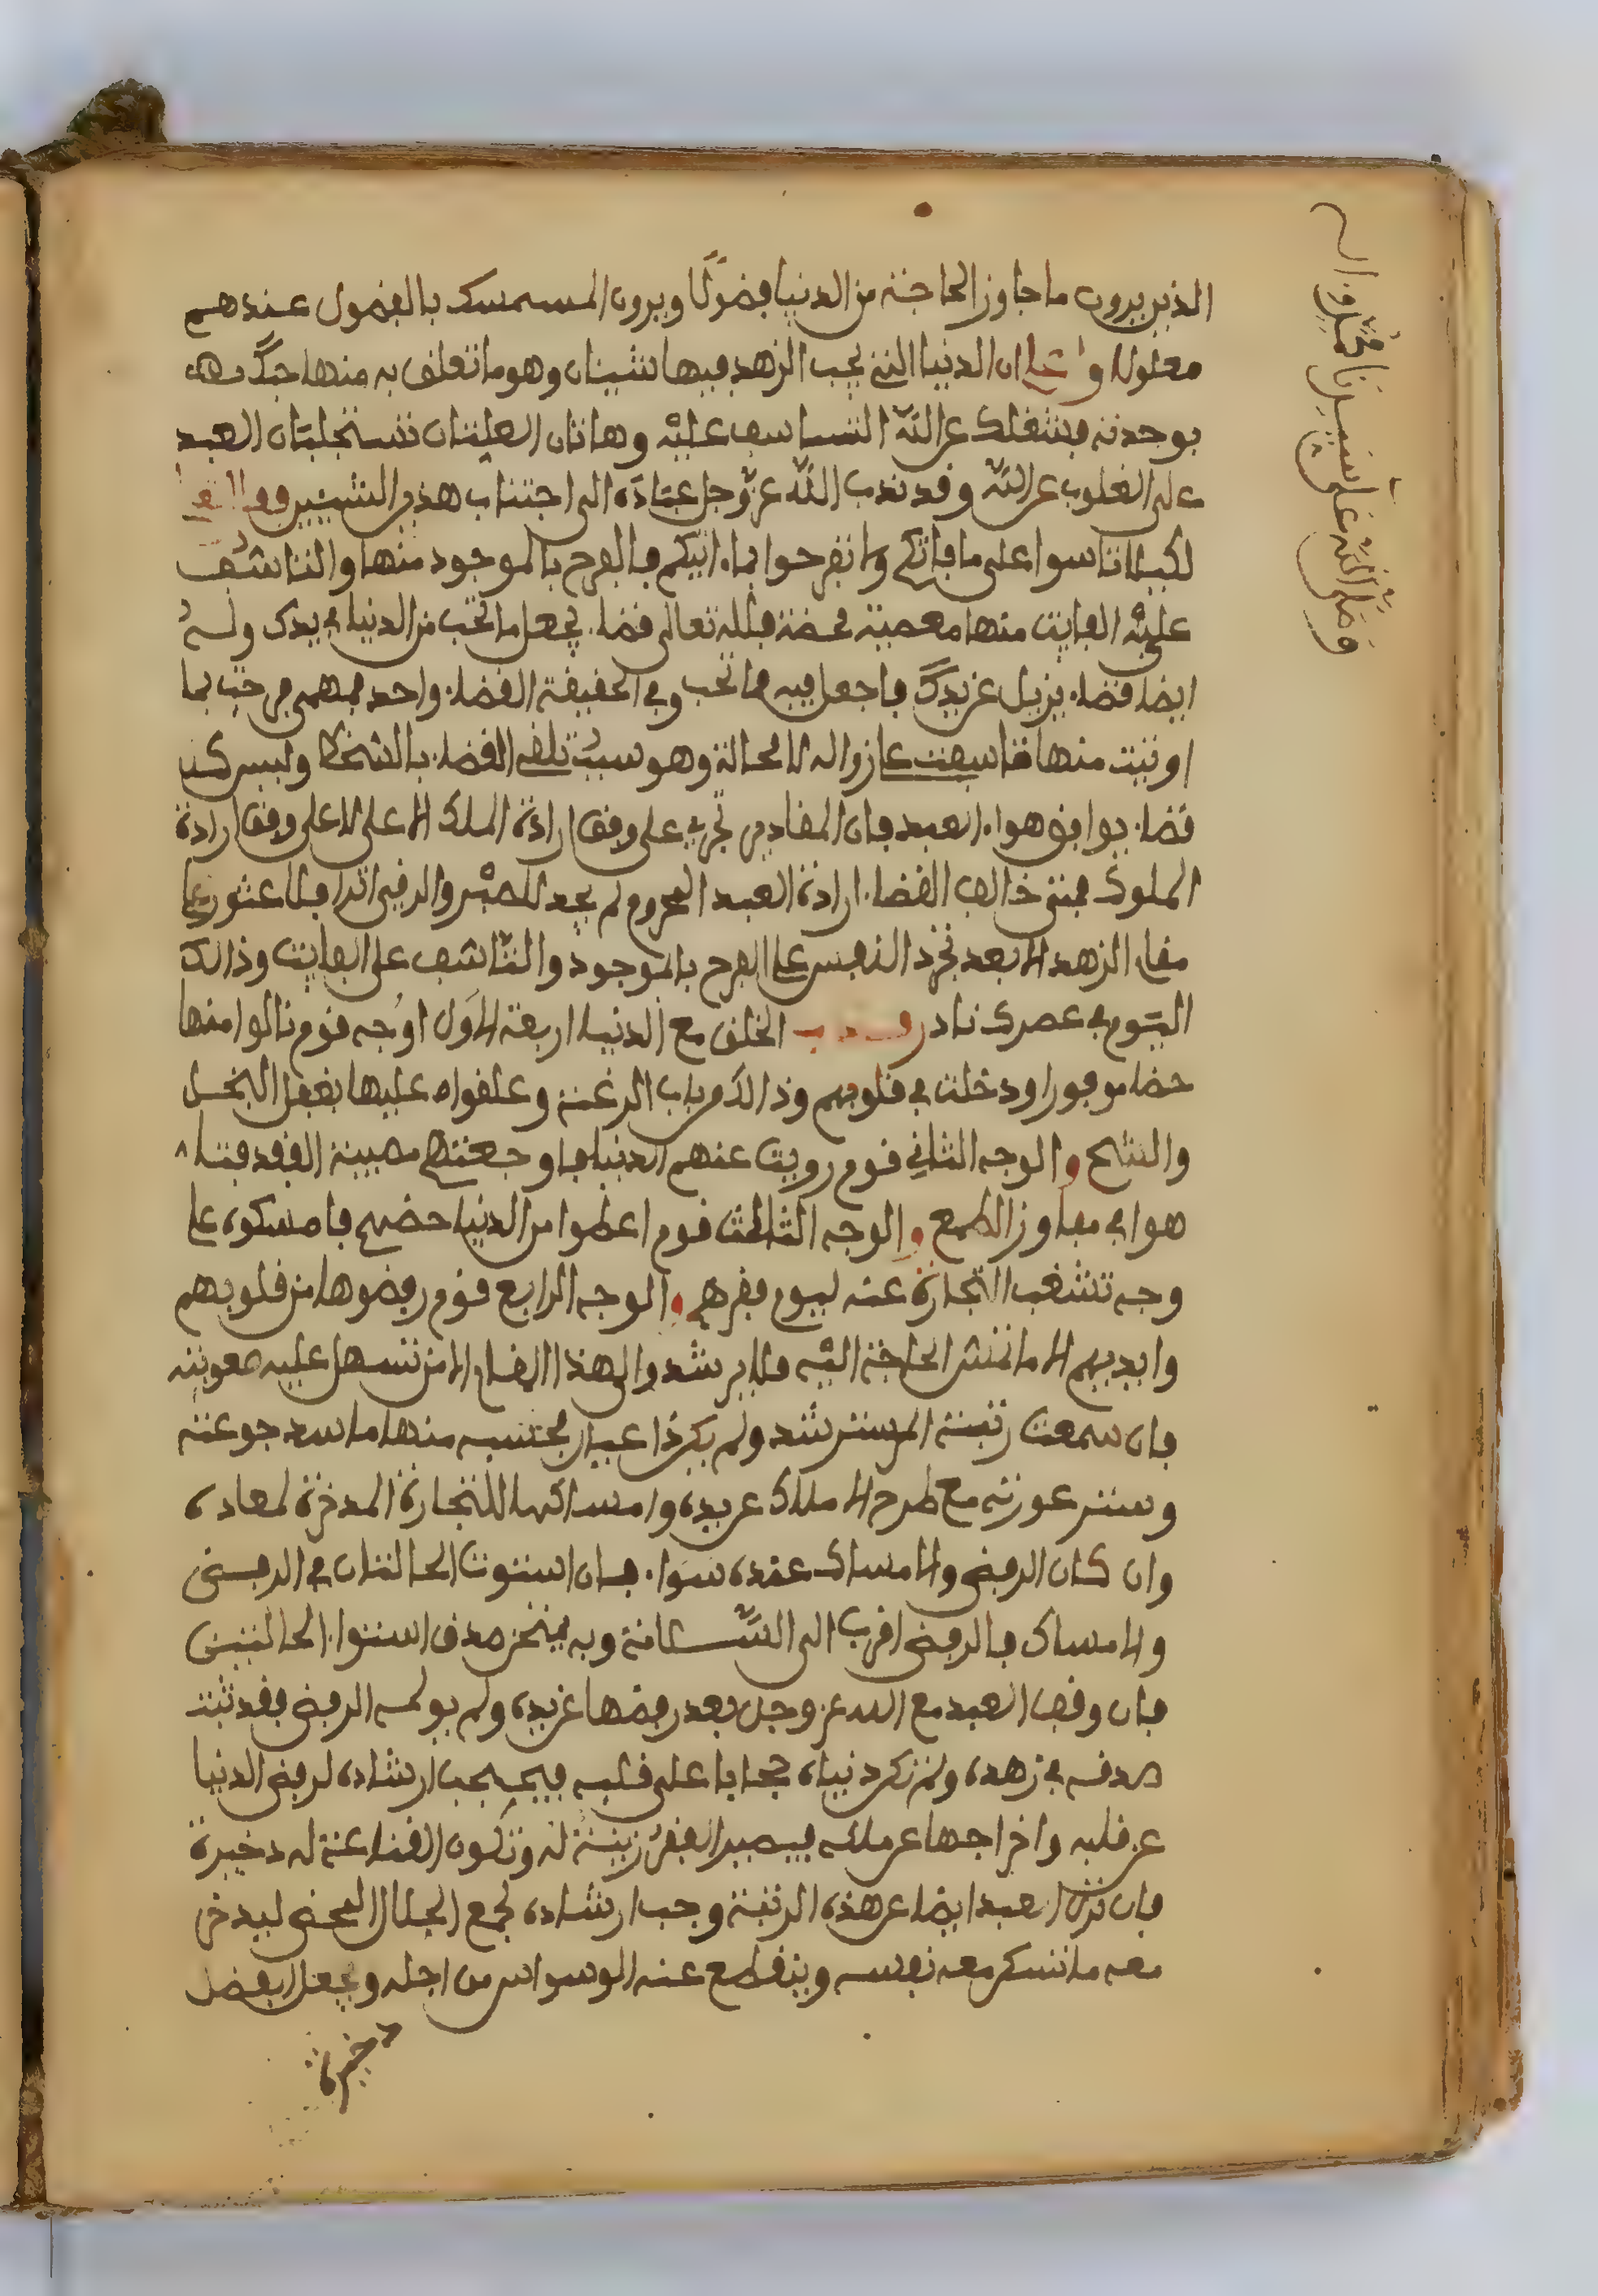 الذين يرون ما جاوز الحاجة من الدنيا فضولا ويرون المستمسك بالفضول عندهم
معلولا واعلم ان الدنيا التي يجب الزهد فيها شيئان وهو ما تعلق به منها حبك
بوجدته فشغلك عن الله التاسف عليه وهاتان العلتان تستجلبان العبد
على القلوب عن الله وقد ندب الله عز وجل عباده الى اجتناب هذين الشيئين
لكيلا تاسوا على ما فاتكم ولا تفرحوا بما اتيكم فالفرح بالموجود منها والتاسف
عليه الفايت منها معصية محضة فلله تعالى قضاء يجعل ما تحب من الدنيا في يدك وله
ايضا قضاء يزيل عن يدك ما جعل فيه مما تحب وفي الحقيقة القضاء واحد فمهمى فرحت بما
اوتيت منها تاسفت على زواله لا محالة وهو سبب تلقي القضاء بالسخط وليس كل
قضاء يوافق هواء العبد فان المقادير تجري على وفق ارادة الملك لا على وفق ارادة
المملوك فمتى خالف القضاء ارادة العبد المحروم لم يجد للصبر والرضى اثرا فلا عثور على
مقام الزهد الا بعد تجرد النفس على الفرح بالموجود والتاسف على الفايت وذالك
اليوم في عصرك نادر الخلق مع الدنيا اربعة الاول اوجه قوم نالوا منها
حضا موفورا ودخلت في قلوبهم وذالك من باب الرغبة وعلقواه عليها بقفل البخل
والشح والوجه الثاني قوم زويت عنهم الدنيا فاوجعتهم مصيبة الفقد فتا
هوا في مفاوز الطمع والوجه الثالث قوم اعطوا من الدنيا حضهم فامسكوه على
وجه تشغب التجارة عنه ليوم فقرهم والوجه الرابع قوم رفضوها من قلوبهم
وايديهم الا ما تمس الحاجة اليه فلا يرشد والى هذا المقام الا من تسهل عليه صعوبته
فان سمعت رتبة المسترشد ولم يكن ذا عيال يحتسبه منها ما سد جوعته
وستر عورته مع طرح الاملاك عن يده وامساكها للتجارة المدخرة لمعاده
وان كان الرفض والامساك عنده سواء فان استوت الحالتان في الرفض
والامساك فالرفض اقرب الى السلامة وبه يمتحن صدق استواء الحالتين
فان وقف العبد مع الله عز وجل بعد رفضها عن يده ولم يولمه الرفض فقد ثبت
صدقه في زهده ولم تكن دنياه حجابا على قلبه فيجب ارشاده لرفض الدنيا
عن قلبه واخراجها عن ملكه فيصير الفقر زينة له وتكون القناعة له دخيرة
فان نزل العبد ايضا عن هذه الرتبة وجب ارشاده لجمع الحلال المحض ليدخر
معه ما تسكن معه نفسه وينقطع عنه الوسواس من اجله ويجعل الفضل
دخيرة
وصلى الله على سيدنا محمد واله